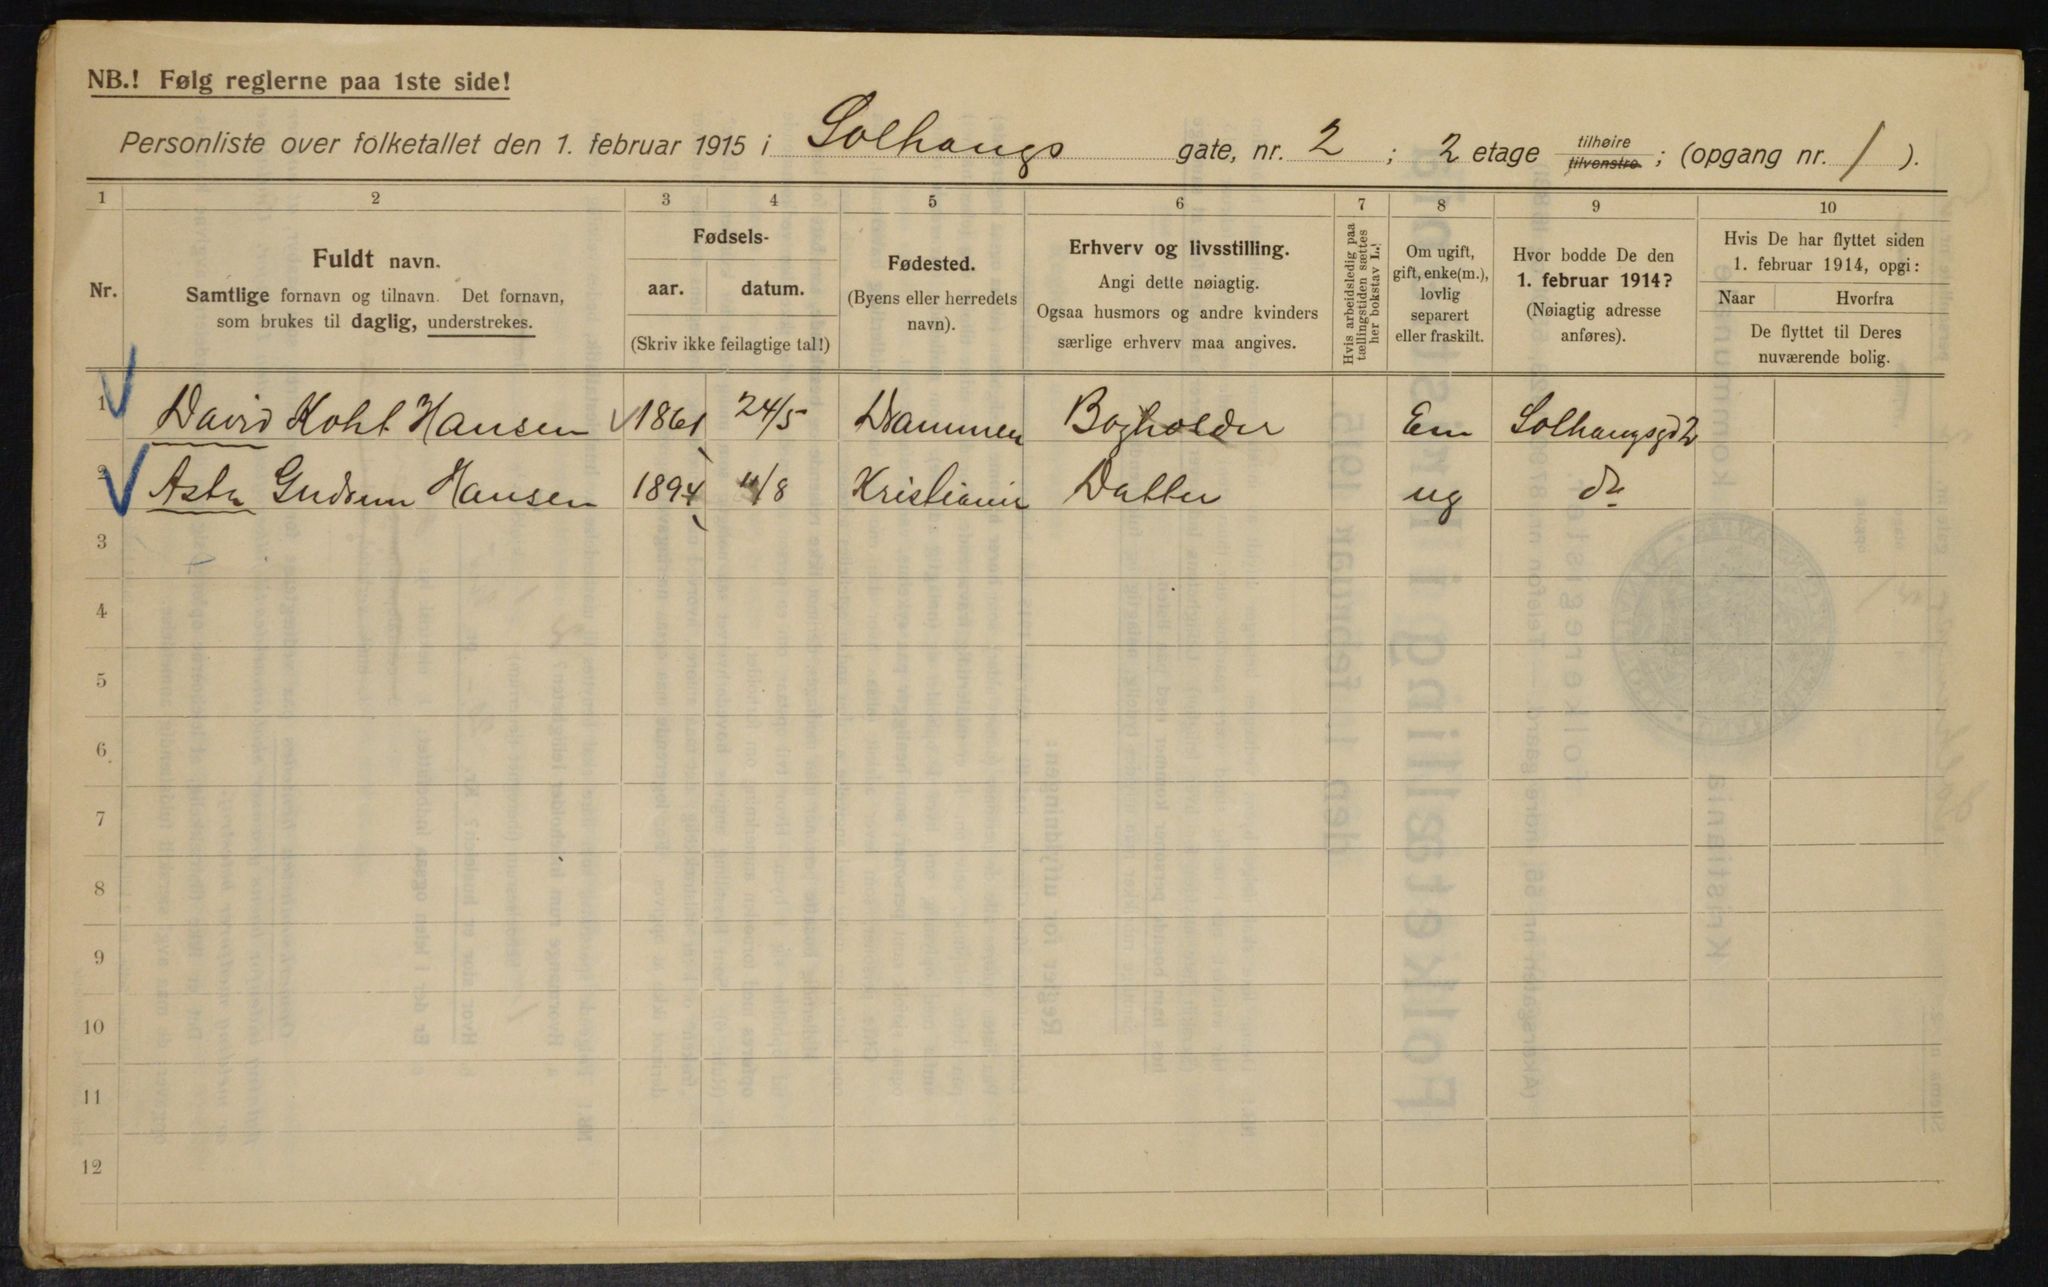 NB.! Følg reglerne paa 1ste side!
Personliste over folketallet den 1. februar 1915 i Solhaugs gate, nr. 2 ; 2 etage tilhøire tilvenstre ; (opgang nr. 1 ).
1 2 3 4 5 6 7 8 9 10
Nr.
Fuldt navn.
Samtlige fornavn og tilnavn. Det fornavn,
som brukes til daglig, understrekes.
Fødsels-
aar. datum.
(Skriv ikke feilagtige tal!)
Fødested.
(Byens eller herredets
navn).
Erhverv og livsstilling.
Angi dette nøiagtig.
Ogsaa husmors og andre kvinders
særlige erhverv maa angives.
Hvis arbeidsledig paa
tællingstiden sættes
her bokstav L.!
Om ugift,
gift, enke(m.),
lovlig
separert
eller fraskilt.
Hvor bodde De den
1. februar 1914?
(Nøiagtig adresse
anføres).
Hvis De har flyttet siden
1. februar 1914, opgi:
Naar Hvorfra
De flyttet til Deres
nuværende bolig.
1 David Koht Hansen 1861 24/5 Drammen Bogholder Em Solhaugsgd 2
2 Asta Gudrun Hansen 1894 11/8 Kristiania Datter ug do
3
4
5
6
7
8
9
10
11
12